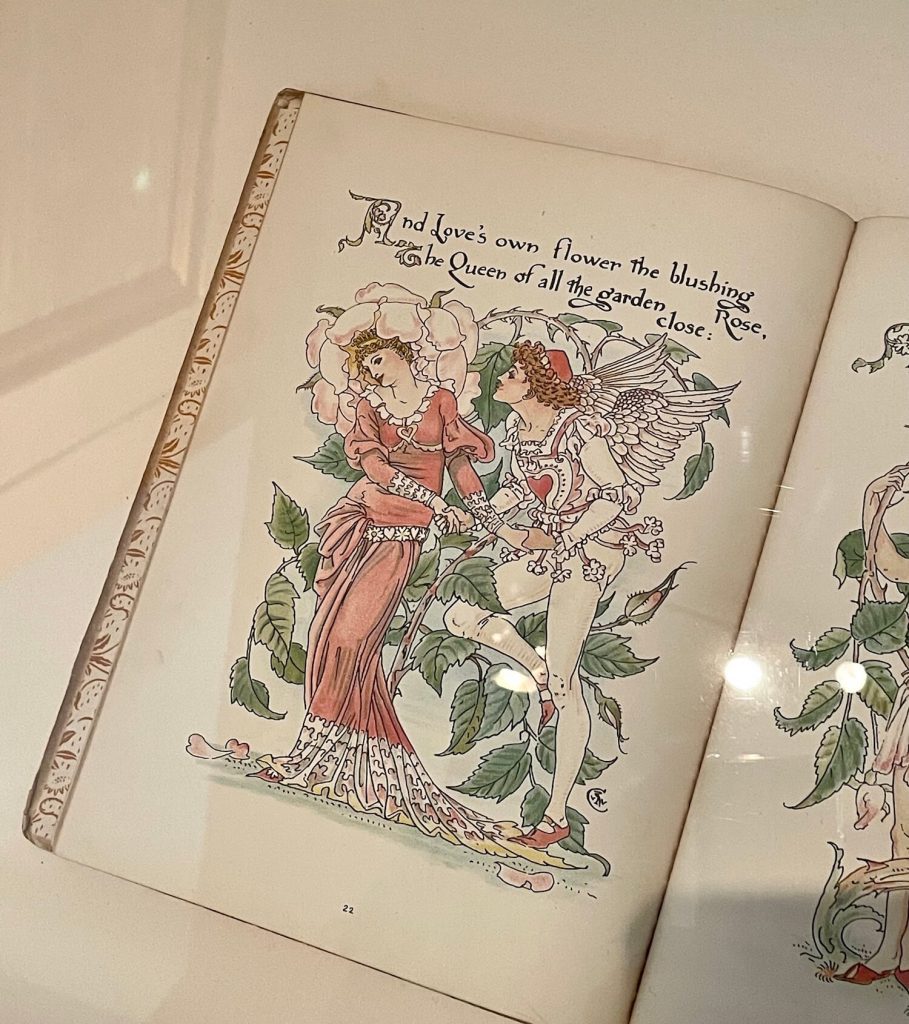 And Love's own flower the blushing Rose,
The Queen of all the garden close:
22